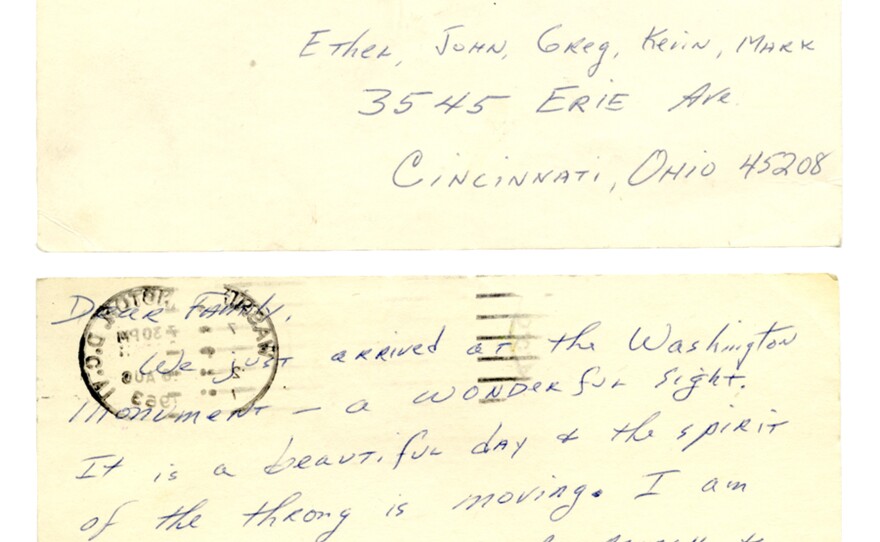 Ethel, JOHN, Greg, Kevin, MARK
3545 ERIE Ave.
CINCINNATI, OHIO 45208
Dear Family,
We just arrived at the Washington
Monument – a wonderful sight.
It is a beautiful day & the spirit
of the throng is moving. I am